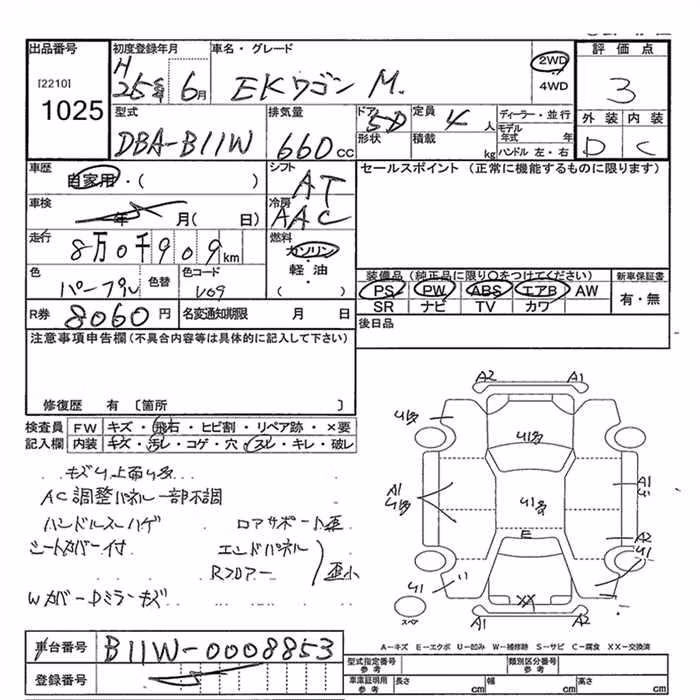 出品番号
[2210]
1025
初度登録年月
H
25年 6月
車名・グレード
EKワゴン M.
2WD
4WD
評価点
3
外装 内装
D C
型式
DBA-B11W
排気量
660cc
ドア
5D
形状
定員
4人
積載
kg
ディーラー・並行
モデル年式 年
ハンドル 左・右
車歴
自家用・( )
シフト
AT
車検
年 月( 日)
冷房
AAC
走行
8万0千909km
燃料
ガソリン
・
軽油
( )
色
パープル
色替
色コード
R券
8060円
名変通知期限 月 日
セールスポイント (正常に機能するものに限ります)
装備品(純正品に限り○をつけてください)
PS PW ABS エアB AW
SR ナビ TV カワ
新車保証書
有・無
後日品
注意事項申告欄(不具合内容等は具体的に記入して下さい)
修復歴 有 〔箇所 〕
検査員記入欄
FW キズ・飛石・ヒビ割・リペア跡・×要
内装 キズ・汚レ・コゲ・穴・スレ・キレ・破レ
AC調整パネル一部不調
ハンドルスレハゲ
ロアサポート歪
シートカバー付
エンドパネル
Rフロアー
歪小
Wカバー Dミラーキズ
A2 A1
U1多
U1多
U1多
A1
U1多
A1
U1
A2
U1
E
U1
XX
スペア
A1 A2
A-キズ E-エクボ U-凹み W-補修跡 S-サビ C-腐食 XX-交換済
車台番号
B11W-0008853
登録番号
型式指定番号
参考
類別区分番号
参考
車庫証明用
参考
長さ cm
幅 cm
高さ cm